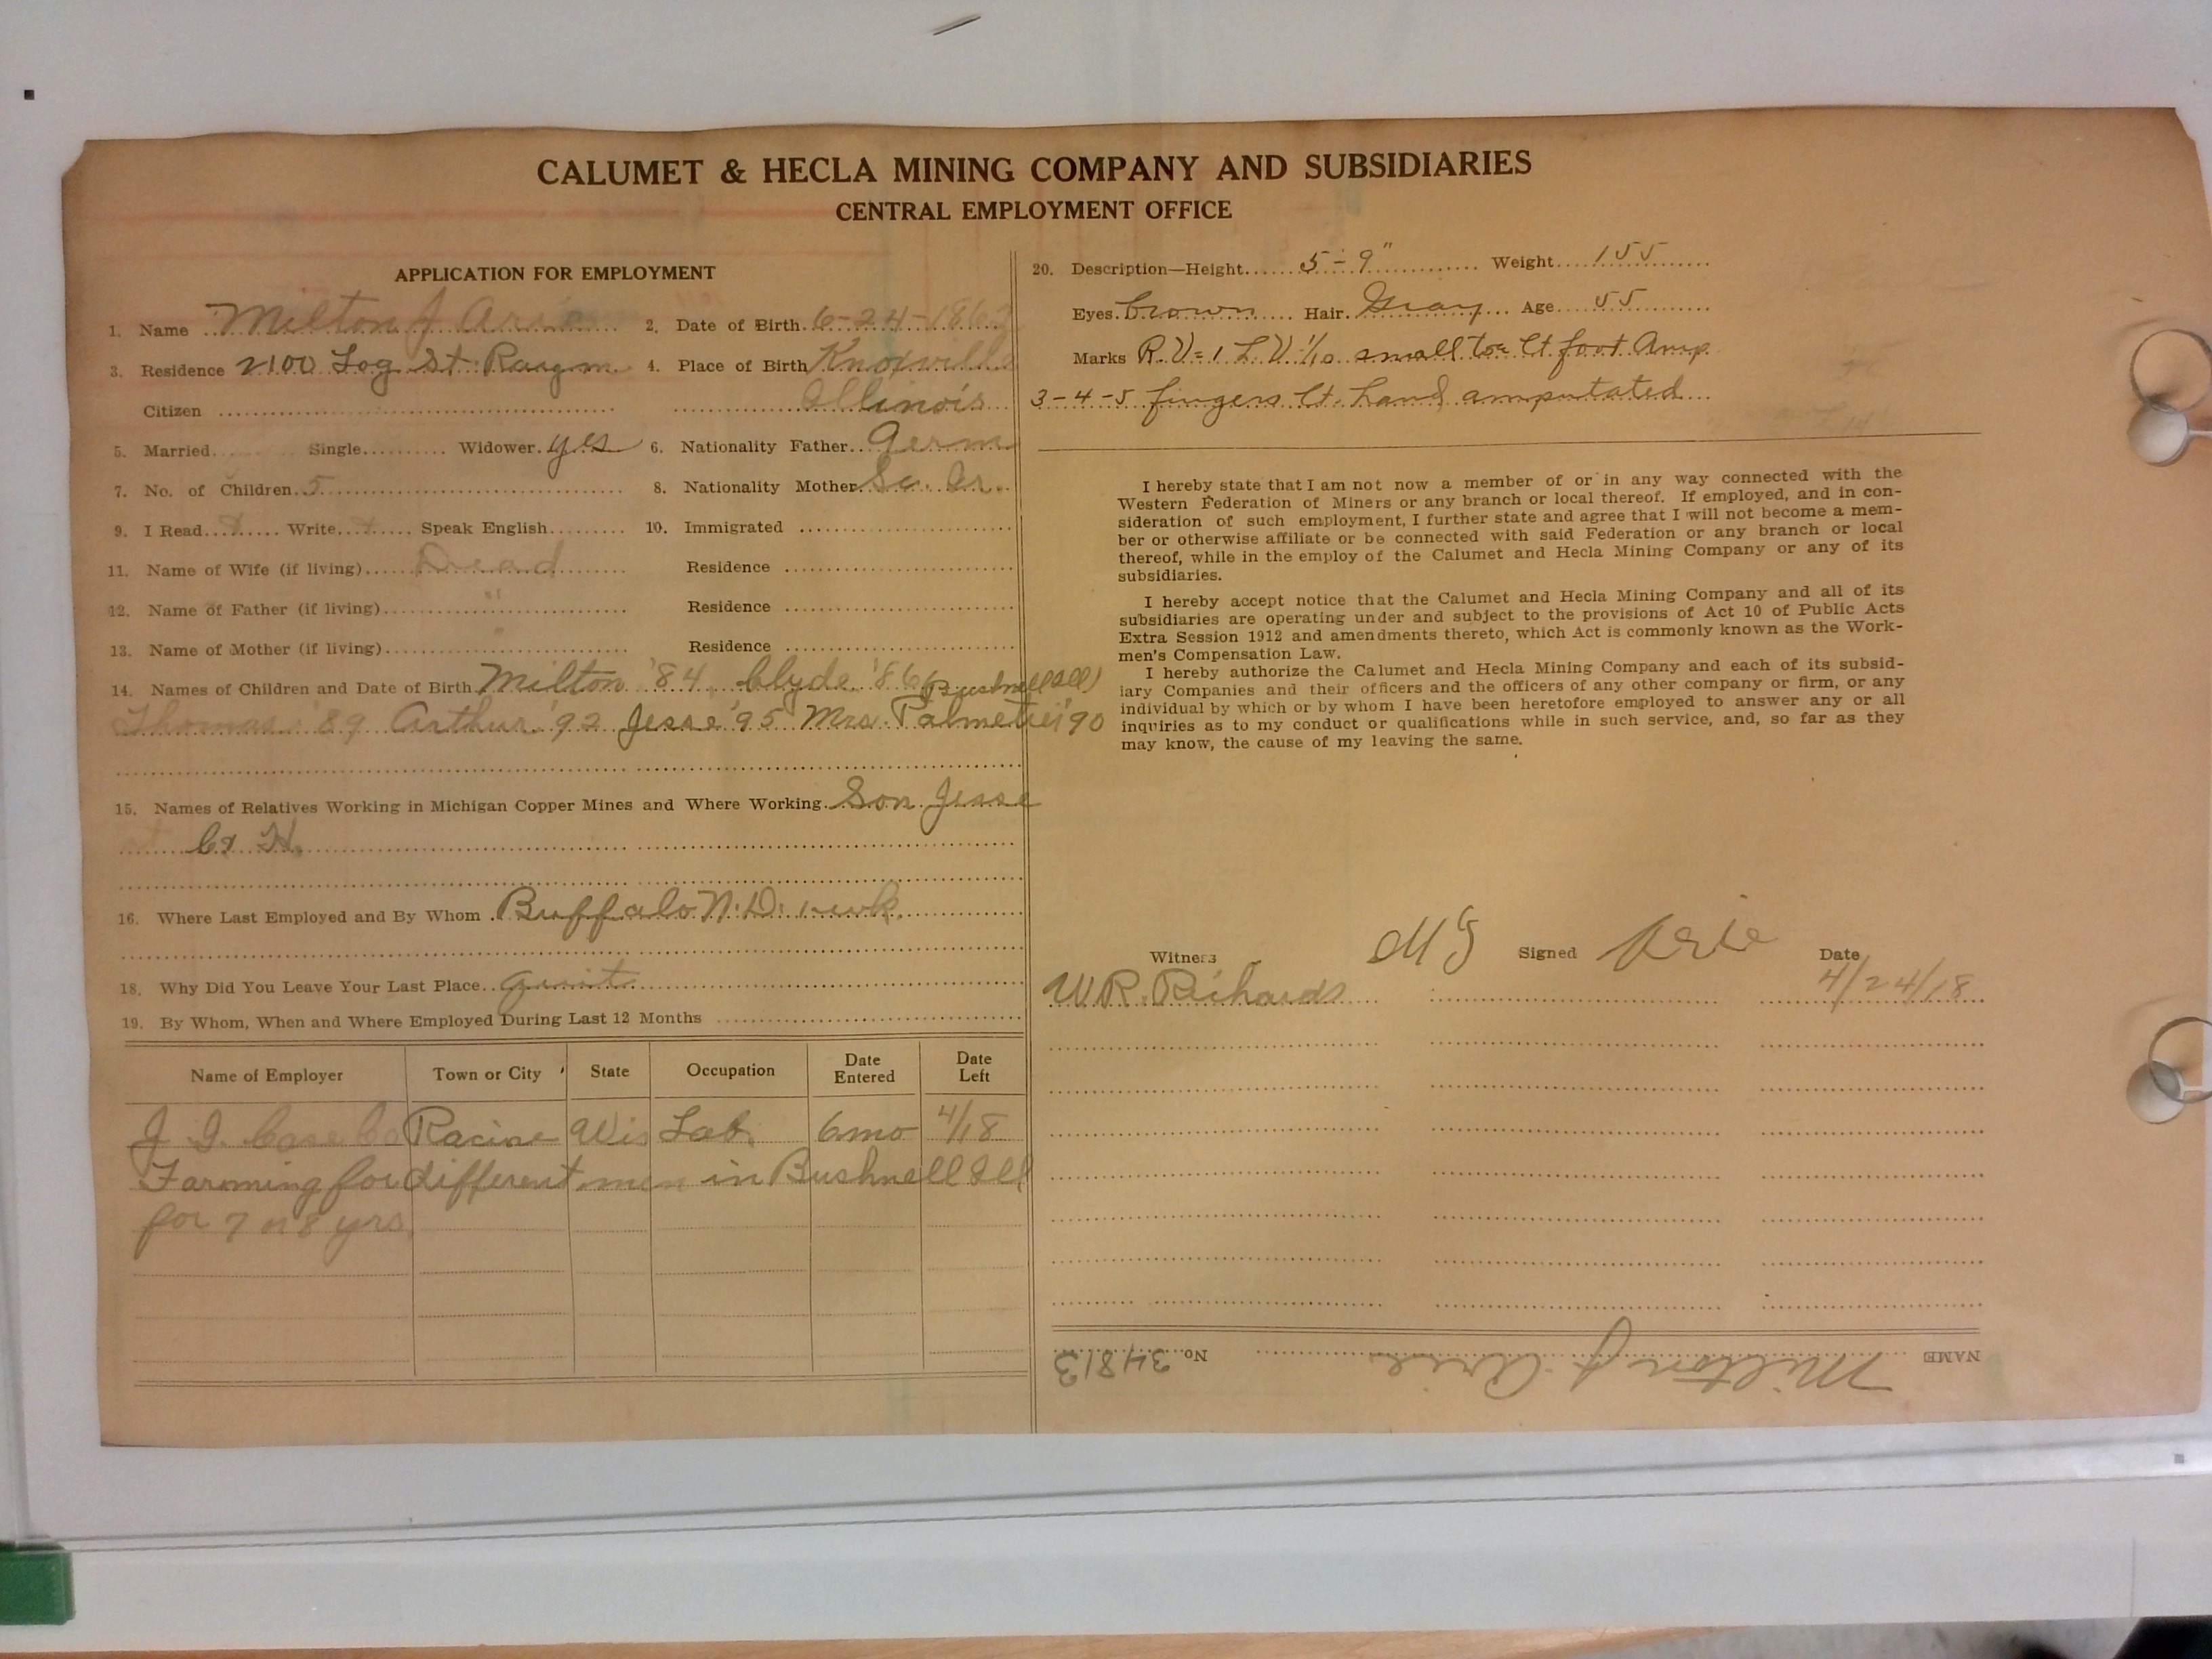 CALUMET & HECLA MINING COMPANY AND SUBSIDIARIES
CENTRAL EMPLOYMENT OFFICE
APPLICATION FOR EMPLOYMENT
1. Name Milton J 2. Date of Birth 6-24-186
3. Residence 2100 Log St. Raym. 4. Place of Birth Knoxville
Citizen Illinois
5. Married Single Widower yes 6. Nationality Father Germ
7. No. of Children 5 8. Nationality Mother Sc. Ir.
9. I Read Write Speak English 10. Immigrated
11. Name of Wife (if living) Dead Residence
12. Name of Father (if living) " Residence
13. Name of Mother (if living) " Residence
14. Names of Children and Date of Birth Milton '84 Clyde '86 (Bushnell Ill)
Thomas '89 Arthur '92 Jesse '95 Mrs. '90
15. Names of Relatives Working in Michigan Copper Mines and Where Working Son Jesse
at C & H.
16. Where Last Employed and By Whom Buffalo N.D. 1 wk.
18. Why Did You Leave Your Last Place quit
19. By Whom, When and Where Employed During Last 12 Months
Name of Employer Town or City State Occupation Date Entered Date Left
J I Case Co Racine Wis Lab. 6mo 4/18
Farming for different men in Bushnell Ill
for 7 or 8 yrs.
20. Description—Height 5-9" Weight 155
Eyes brown Hair Gray Age 55
Marks R.V=1 L.V 1/10 small toe lt foot Amp
3-4-5 fingers lt. hand amputated
I hereby state that I am not now a member of or in any way connected with the
Western Federation of Miners or any branch or local thereof. If employed, and in con-
sideration of such employment, I further state and agree that I will not become a mem-
ber or otherwise affiliate or be connected with said Federation or any branch or local
thereof, while in the employ of the Calumet and Hecla Mining Company or any of its
subsidiaries.
I hereby accept notice that the Calumet and Hecla Mining Company and all of its
subsidiaries are operating under and subject to the provisions of Act 10 of Public Acts
Extra Session 1912 and amendments thereto, which Act is commonly known as the Work-
men's Compensation Law.
I hereby authorize the Calumet and Hecla Mining Company and each of its subsid-
iary Companies and their officers and the officers of any other company or firm, or any
individual by which or by whom I have been heretofore employed to answer any or all
inquiries as to my conduct or qualifications while in such service, and, so far as they
may know, the cause of my leaving the same.
Witness M J Signed Arie Date
W.R. Richards 4/24/18
NAME Milton J. Arie No. 34813